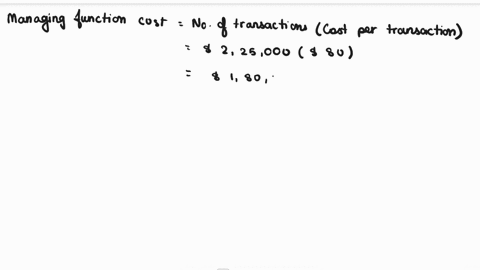 Managing function cost = No. of transactions (Cost per transaction)
= $ 2,25,000 ( $ 80)
= $ 1,80,